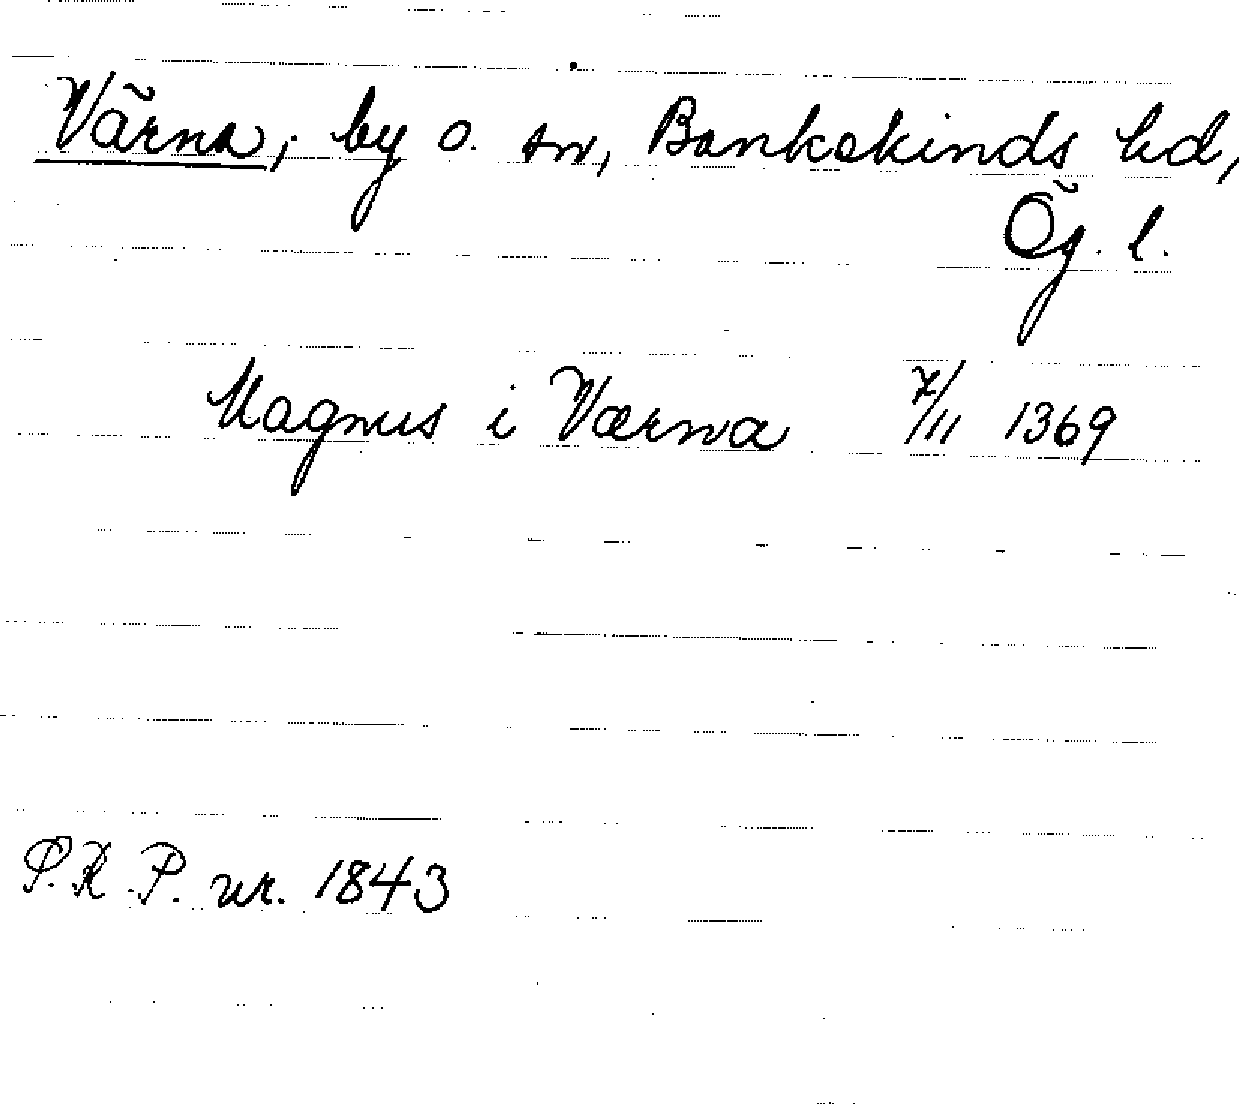 Värna, by o. sn, Bankekinds hd,
Ög. l.
Magnus i Værna 7/11 1369
P.R.P. nr. 1843